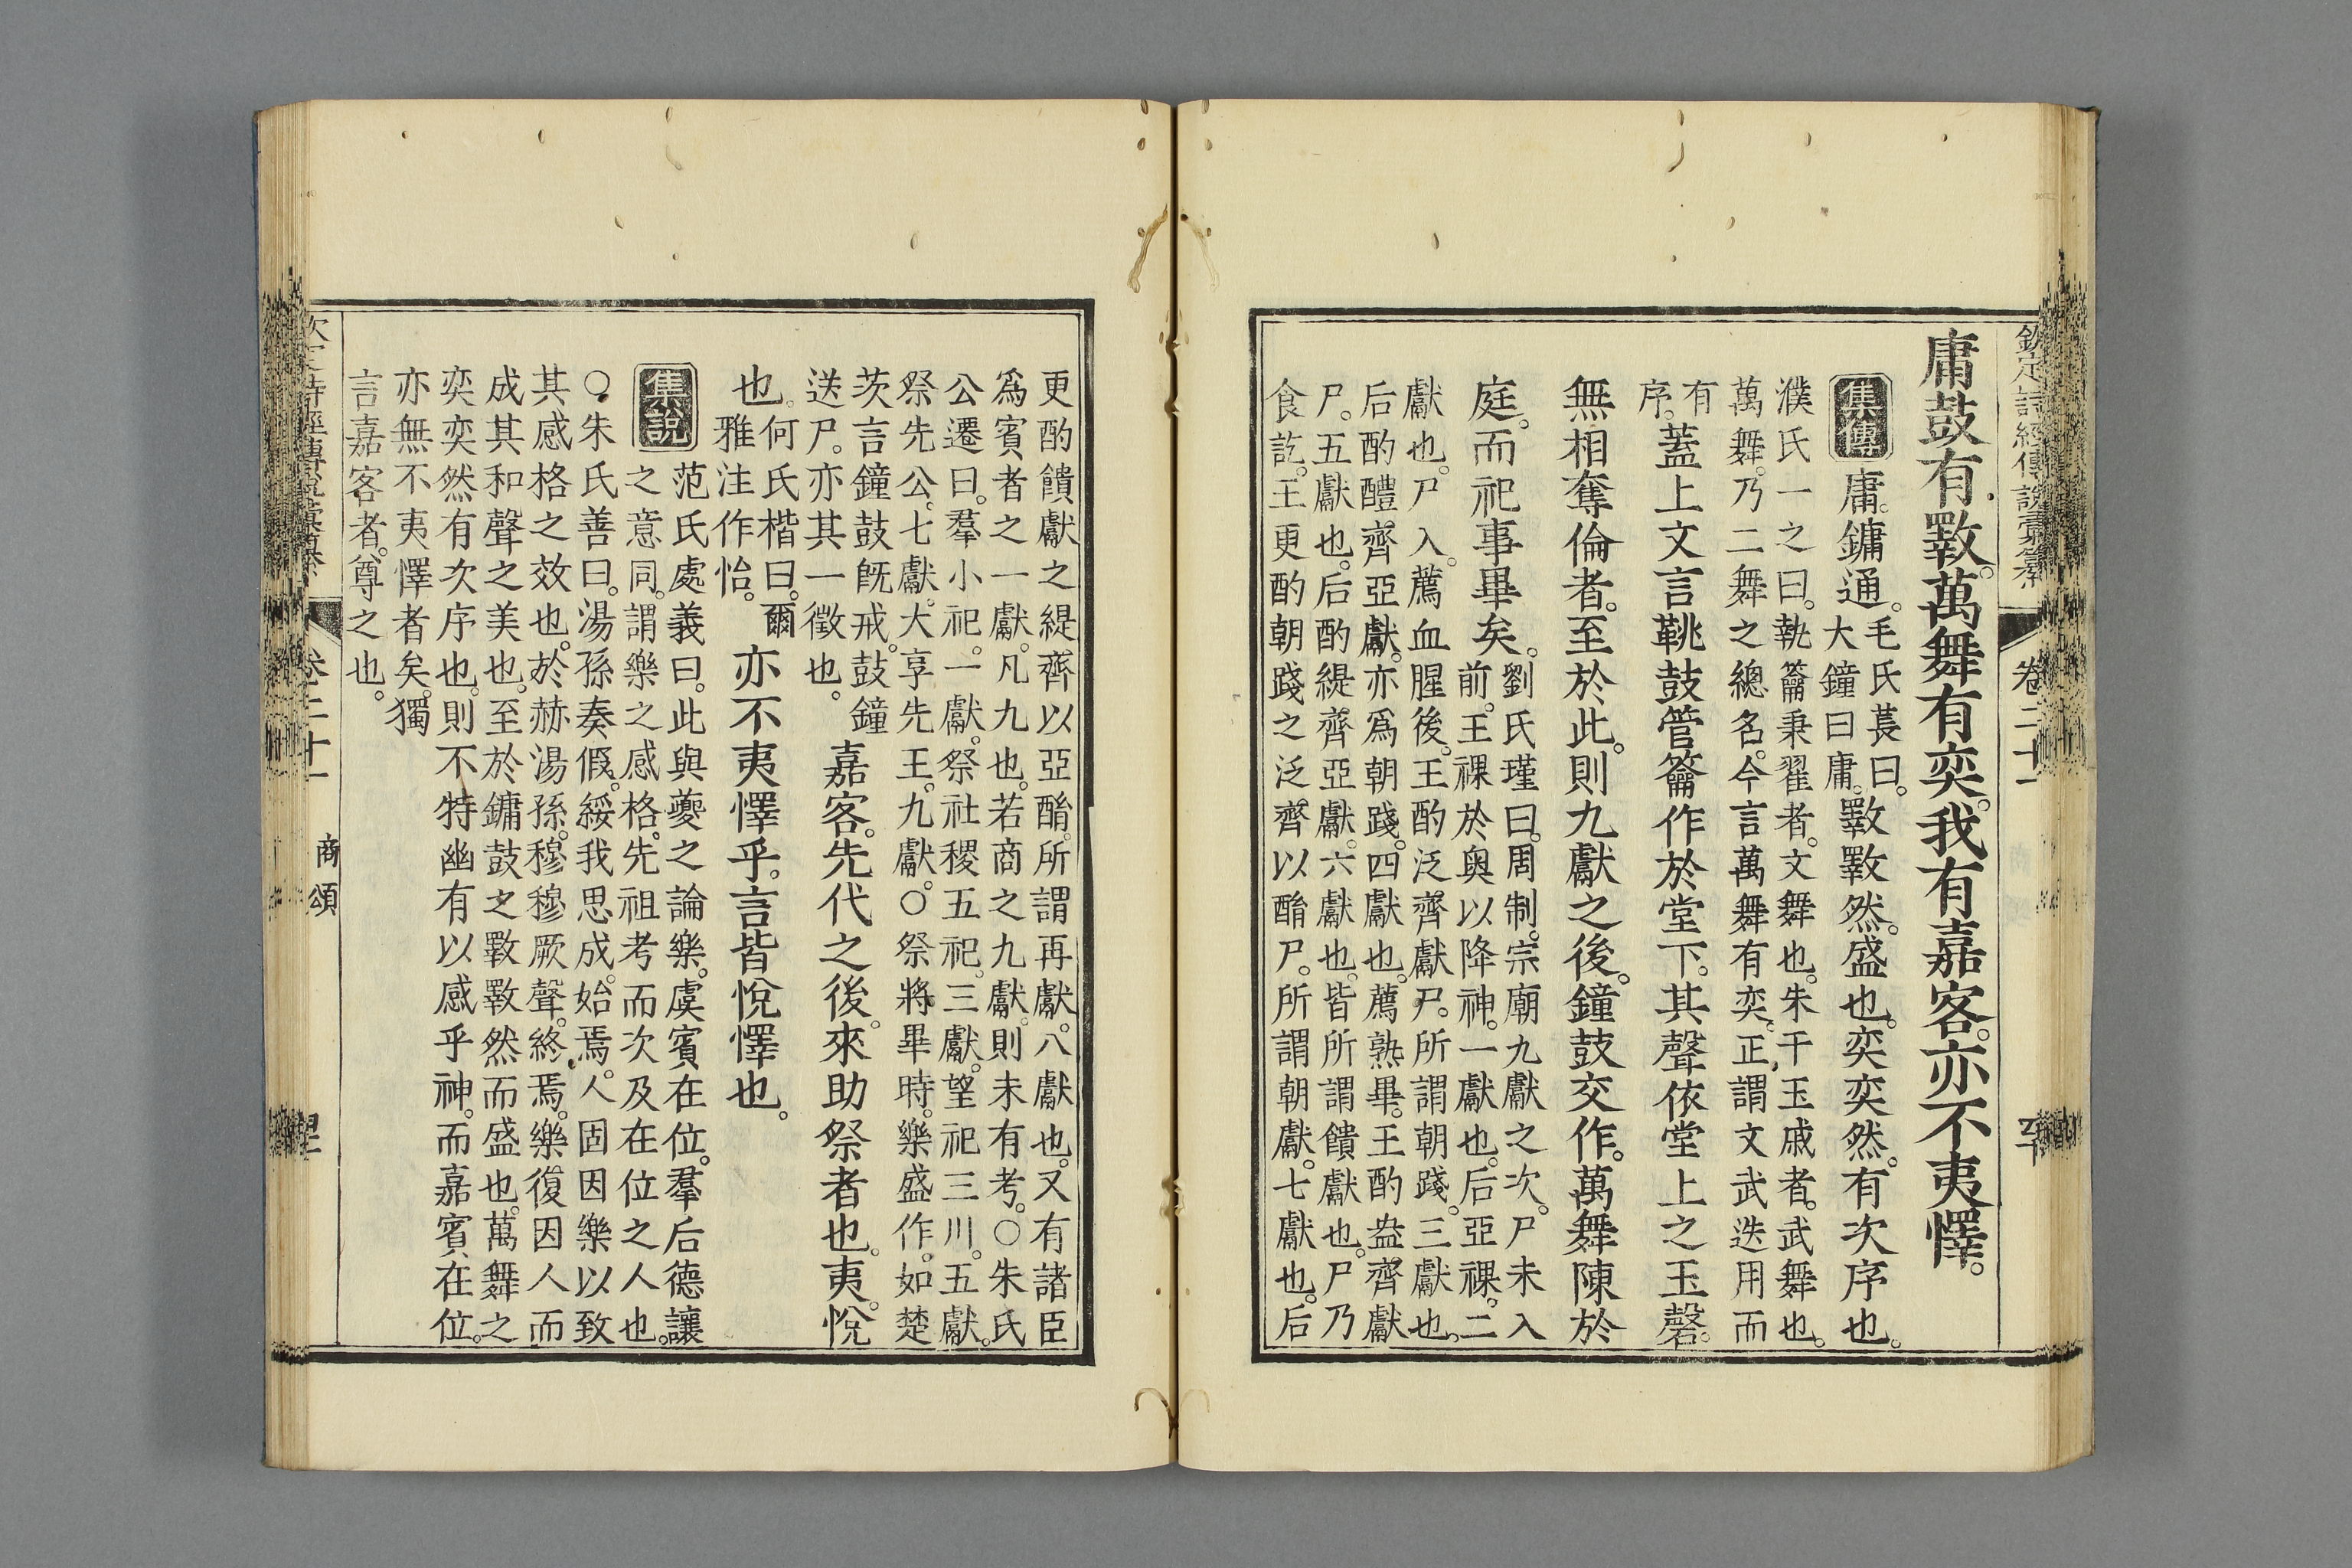 欽定詩經傳說彙纂 卷二十一
庸鼓有斁。萬舞有奕。我有嘉客。亦不夷懌。
集傳
庸。鏞通。
毛氏萇曰。
大鐘曰庸。
斁斁然。盛也。奕奕然。有次序也。
濮氏一之曰。執籥秉翟者。文舞也。朱干玉戚者。武舞也。
萬舞。乃二舞之總名。今言萬舞有奕。正謂文武迭用而
有
序。
蓋上文言鞉鼓管籥作於堂下。其聲依堂上之玉磬。
無相奪倫者。至於此。則九獻之後。鐘鼓交作。萬舞陳於
庭。而祀事畢矣。
劉氏瑾曰。周制。宗廟九獻之次。尸未入
前。王祼於奥以降神。一獻也。后亞祼。二
獻也。尸入。薦血腥後。王酌泛齊獻尸。所謂朝踐。三獻也。
后酌醴齊亞獻。亦爲朝踐。四獻也。薦熟畢。王酌盎齊獻
尸。五獻也。后酌緹齊亞獻。六獻也。皆所謂饋獻也。尸乃
食訖。王更酌朝踐之泛齊以酳尸。所謂朝獻。七獻也。后
更酌饋獻之緹齊以亞酳。所謂再獻。八獻也。又有諸臣
爲賓者之一獻。凡九也。若商之九獻。則未有考。○朱氏
公遷曰。羣小祀。一獻。祭社稷五祀。三獻。望祀三川。五獻。
祭先公。七獻。大享先王。九獻。○祭將畢時。樂盛作。如楚
茨言鐘鼓旣戒。鼓鐘
送尸。亦其一徵也。
嘉客。先代之後。來助祭者也。夷。悅
也。
何氏楷曰。爾
雅注作怡。
亦不夷懌乎。言皆悅懌也。
集說
范氏處義曰。此與夔之論樂。虞賓在位。羣后德讓
之意同。謂樂之感格。先祖考而次及在位之人也。
○朱氏善曰。湯孫奏假。綏我思成。始焉。人固因樂以致
其感格之效也。於赫湯孫。穆穆厥聲。終焉。樂復因人而
成其和聲之美也。至於鏞鼓之斁斁然而盛也。萬舞之
奕奕然有次序也。則不特幽有以感乎神。而嘉賓在位。
亦無不夷懌者矣。獨
言嘉客者。尊之也。
卷二十一 商頌